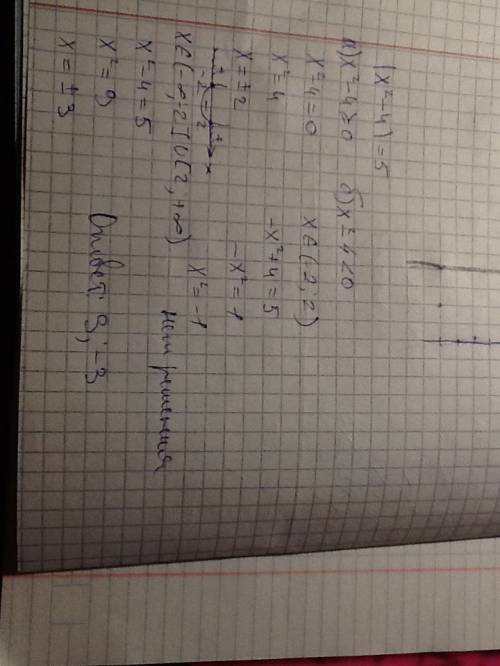 |x²-4|=5
а) x²-4≥0
x²-4=0
x²=4
x=±2
+ - + x
-2 2
x∈(-∞;-2]∪[2,+∞)
x²-4=5
x²=9
x=±3
б) x²-4<0
x∈(-2;2)
-x²+4=5
-x²=1
x²=-1
Нет решения
Ответ: 3; -3